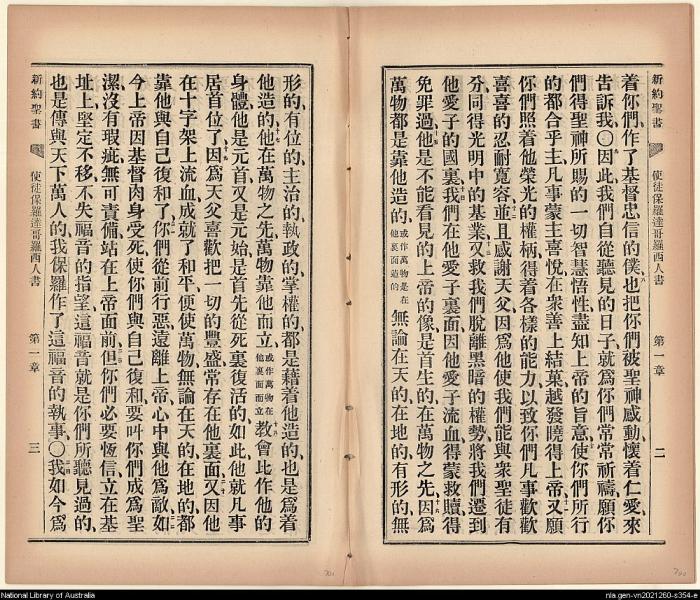 新約聖書 使徒保羅達哥羅西人書 第一章 二
着你們、作了基督忠信的僕、也把你們被聖神感動懷着仁愛來
告訴我〇因此我們自從聽見的日子、就爲你們常常祈禱、願你
們得聖神所賜的一切智慧悟性、盡知上帝的旨意、使你們所行
的都合乎主、凡事蒙主喜悅、在衆善上結菓、越發曉得上帝、又願
你們照着他榮光的權柄、得着各樣的能力、以致你們凡事歡歡
喜喜的忍耐寬容、並且感謝天父、因爲他使我們能與衆聖徒有
分、同得光明中的基業、又救我們脫離黑暗的權勢、將我們遷到
他愛子的國裏、我們在他愛子裏面、因他愛子流血、得蒙救贖、得
免罪過、他是不能看見的上帝的像、是首生的、在萬物之先、因爲
萬物都是靠他造的、或作萬物是在他裏面造的無論在天的、在地的、有形的、無
形的、有位的、主治的、執政的、掌權的、都是藉着他造的、也是爲着
他造的、他在萬物之先、萬物靠他而立、或作萬物在他裏面而立教會比作他的
身體、他是元首、又是元始、是首先從死裏復活的、如此他就凡事
居首位了、因爲天父喜歡把一切的豐盛常存在他裏面、又因他
在十字架上流血、成就了和平、便使萬物、無論在天的在地的、都
靠他與自己復和了、你們從前行惡、遠離上帝、心中與他爲敵、如
今上帝因基督肉身受死、使你們與自己復和、要叫你們成爲聖
潔、沒有瑕疵、無可責備、站在上帝面前、但你們必要恆信、立在基
址上、堅定不移、不失福音的指望、這福音就是你們所聽見過的、
也是傳與天下萬人的、我保羅作了這福音的執事、〇我如今爲
新約聖書 使徒保羅達哥羅西人書 第一章 三
National Library of Australia
nla.gen-vn2021260-s354-e